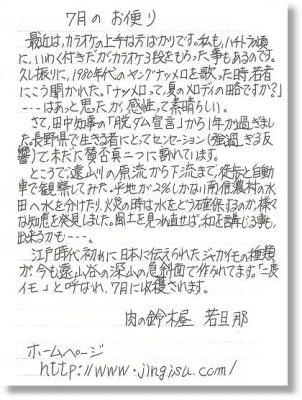 7月の お便り
最近は、カラオケの上手な方ばかりです。私も、ハイトラの頃
に、いわく付きだが、カラオケ3段をもらった事もあるのです。
久し振りに、1980年代のヤングナツメロを歌った時、若者
にこう聞かれた。「ナツメロって、夏のメロディの略ですか?」
---はあっと思ったが、感性って素晴らしい。
さて、田中知事の「脱ダム宣言」から1年が過ぎまし
た。長野県で生きる者にとってセンセーション(強過ぎる反
響)で未だに賛否真二つに割れています。
ところで、遠山川の原流から下流まで、徒歩と自動
車で観察してみた。平地が2%しかない南信濃村の水
田へ水を分けたり、火災の時は水をどう確保するのか、様々
な知恵を発見しました。風土を見つめ直せば、和を講じる事も、
出来るかも---。
江戸時代初めに日本に伝えられた、ジャガイモの種類
が、今も遠山谷の深山の急斜面で作られてます。「二度
イモ」と呼ばれ、7月に収穫されます。
肉の鈴木屋 若旦那
ホームページ
http://www.jingisu.com/